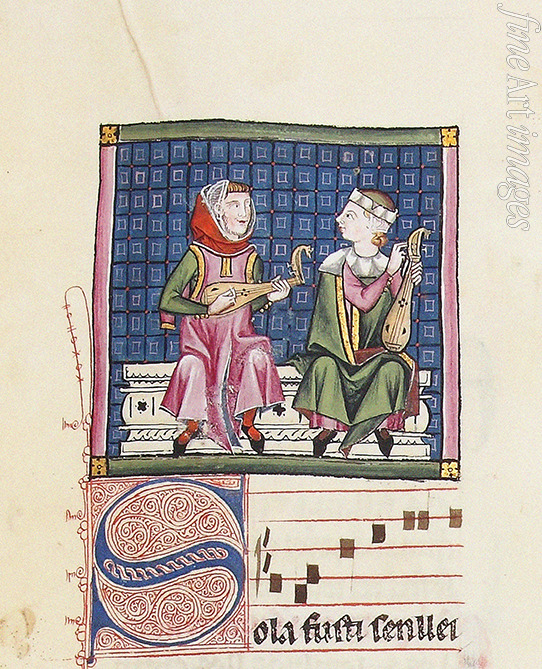 fine Art images
Sola fusti senllei